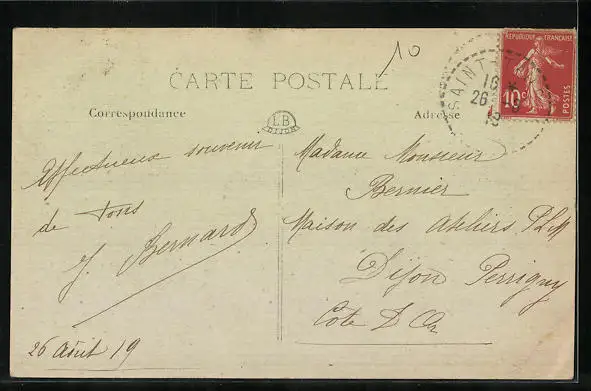 10
CARTE POSTALE
Correspondance
Adresse
L.B
DIJON
RÉPUBLIQUE FRANÇAISE
10c
POSTES
SAINT
16
26
19
Affectueux souvenir
de tous
J. Bernard
26 Août 19
Madame Monsieur
Bernier
Maison des Ateliers PLM
Dijon Perrigny
Côte D'Or